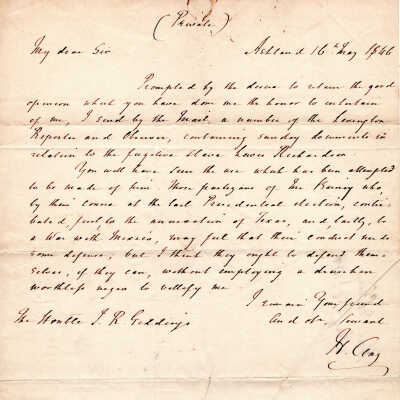 (Private)
My dear Sir Ashland 16th May 1846
Prompted by the desire to retain the good
opinion which you have done me the honor to entertain
of me, I send by this Mail, a number of the Lexington
Reporter and Observer, containing sundry documents in
relation to the fugitive slave Lewis Richardson.
You will have seen the use which has been attempted
to be made of him. Those partizans of Mr Birney who,
by their course at the last Presidential election, contri-
buted, first, to the annexation of Texas, and, lastly, to
a War with Mexico, may feel that their conduct needs
some defence; but I think they ought to defend them-
selves, if they can, without employing a drunken
worthless negro to vilify me.
I remain Your friend
The Honble J. R. Giddings And ob. Servant
H. Clay